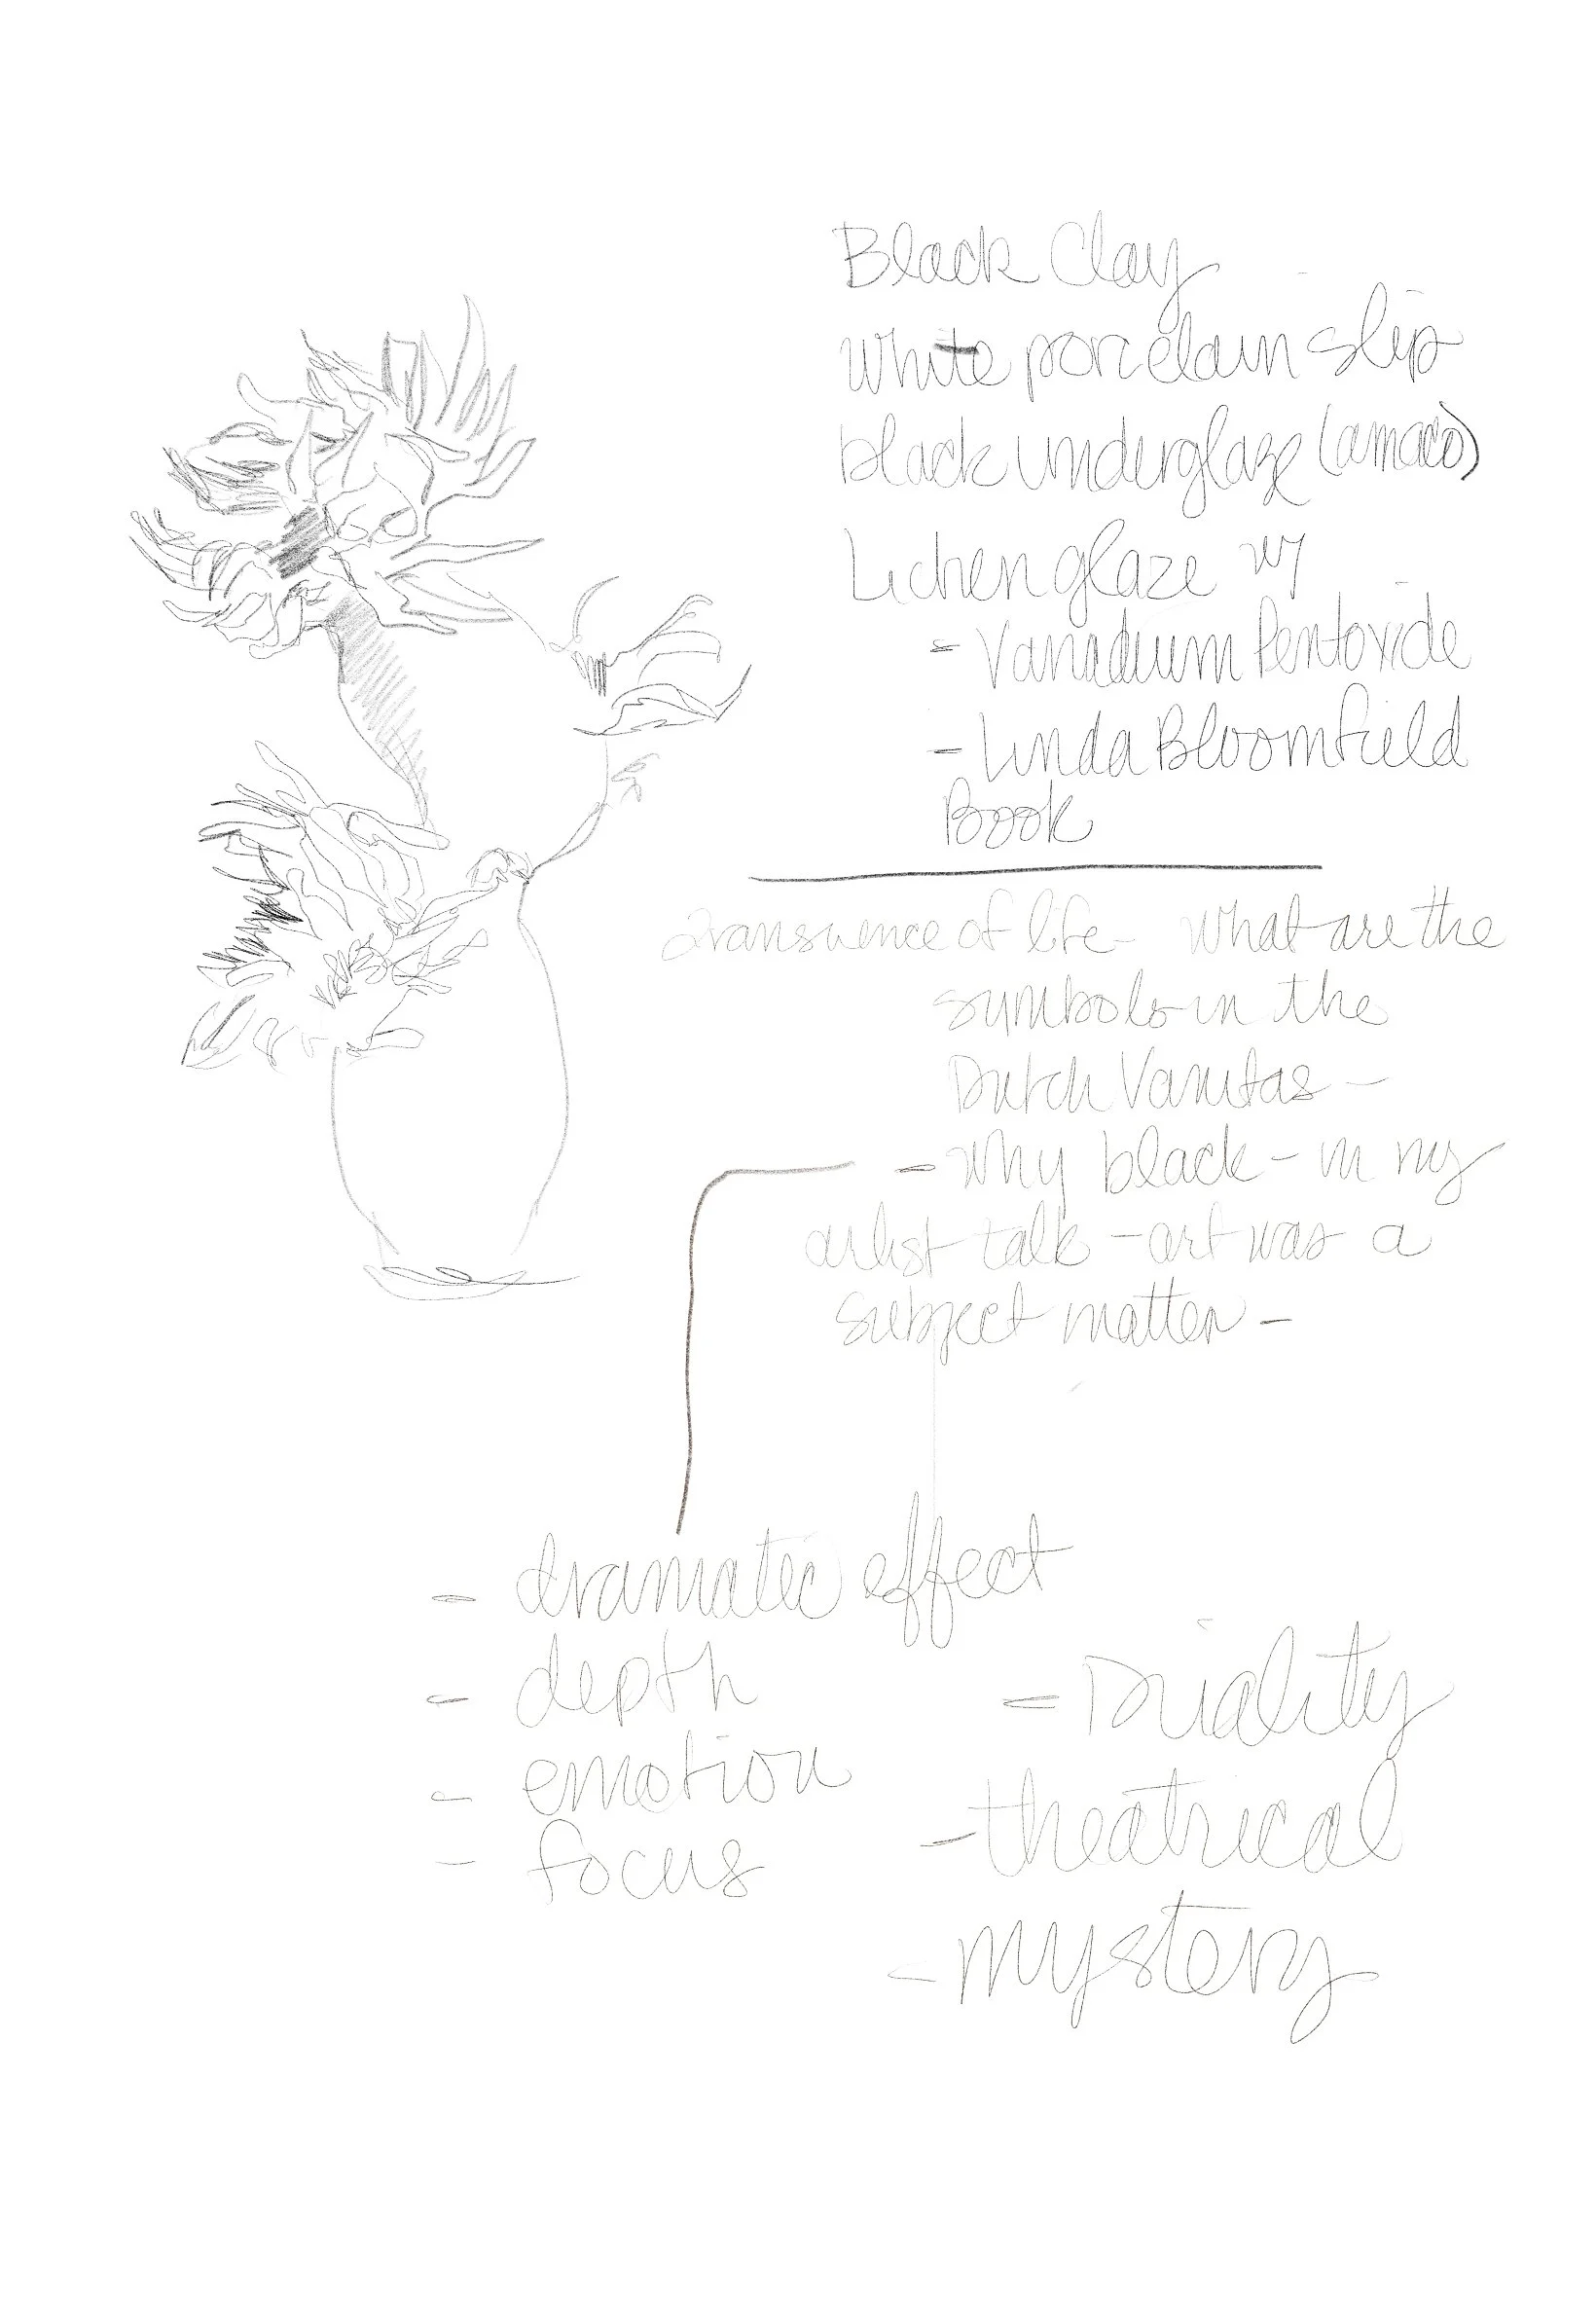 Black Clay
White porcelain slip
black underglaze (amaco)
Lichen glaze w/
- Vanadium Pentoxide
- Linda Bloomfield
Book
transience of life - What are the
symbols in the
Dutch Vanitas -
- Why black - in my
artist talk - art was a
subject matter -
- dramatic effect
- depth
- emotion
- focus
- Duality
- theatrical
- mystery